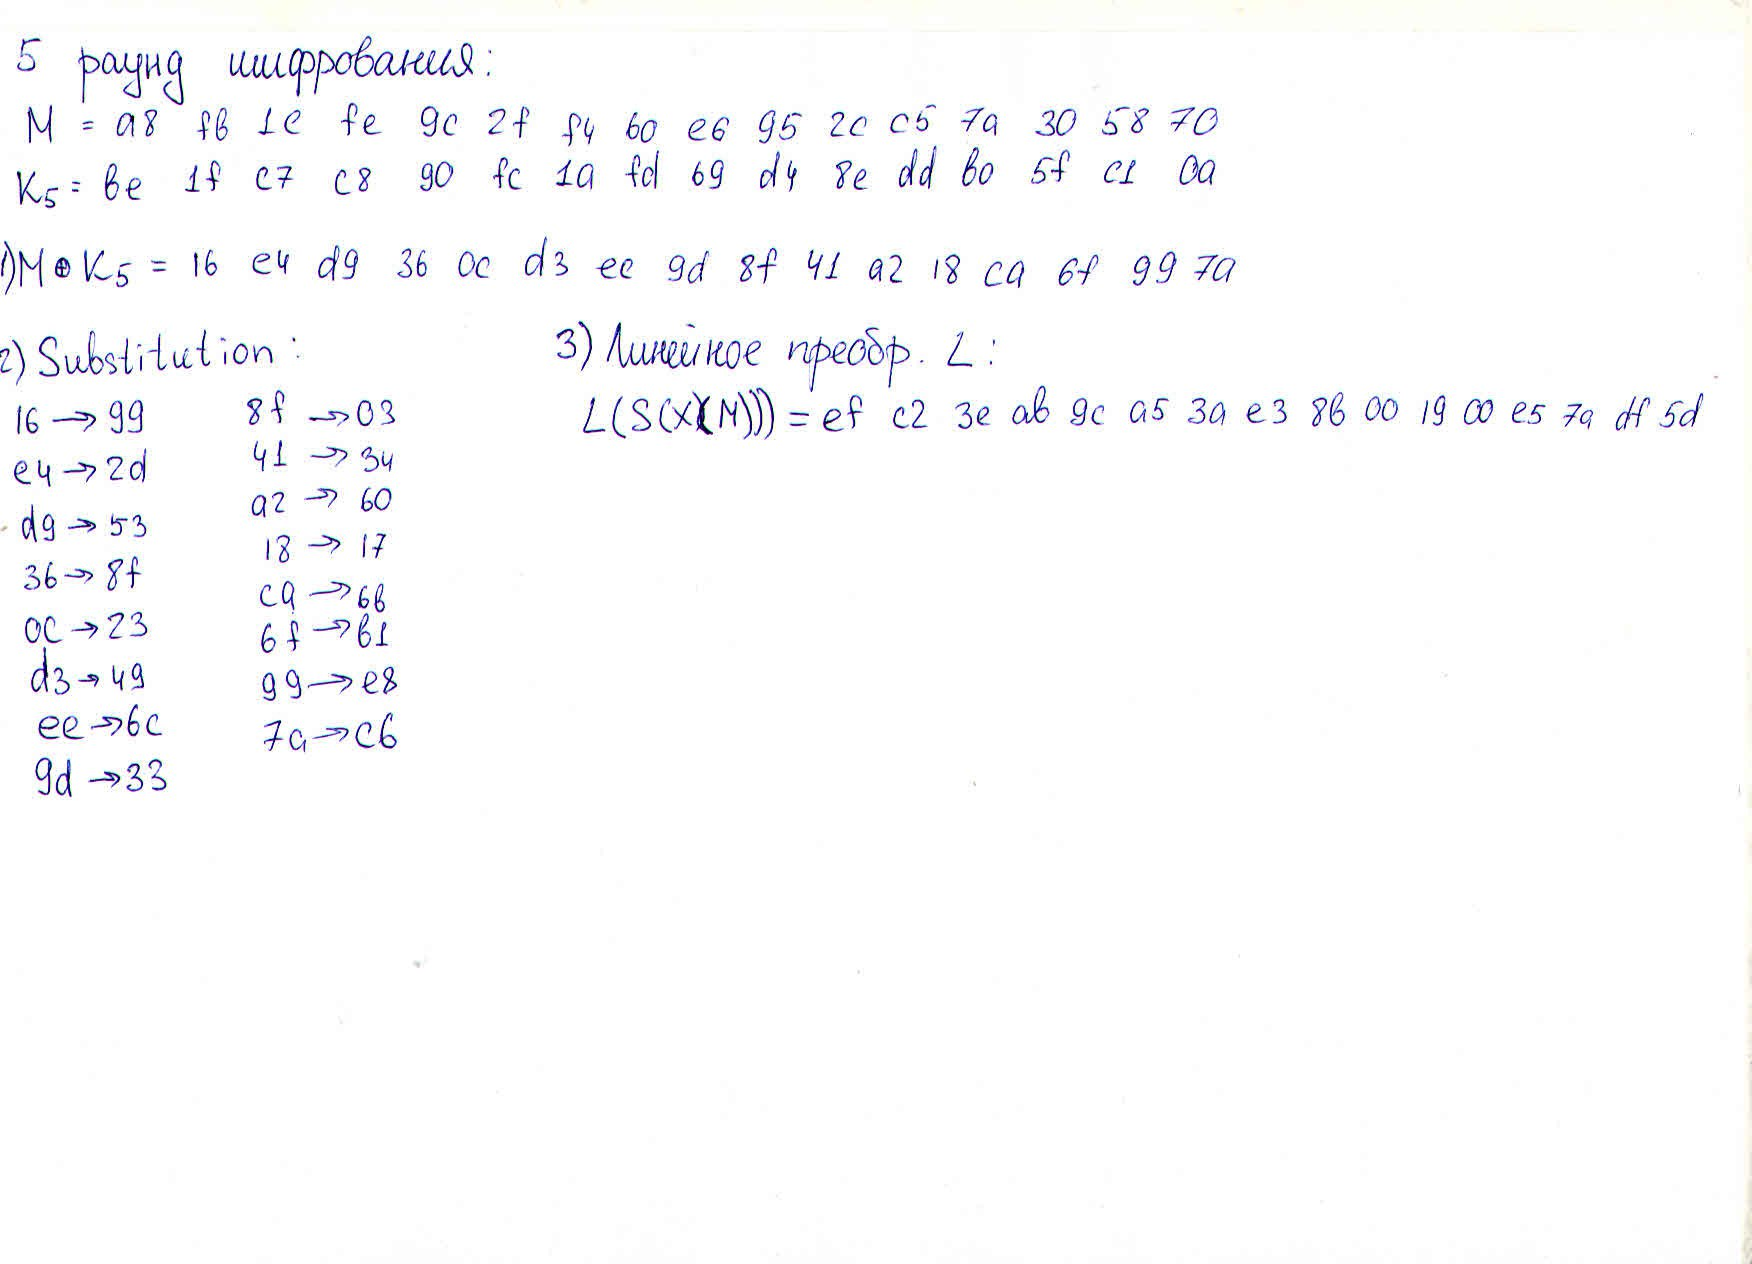 5 раунд шифрования:
M = a8 fb 1e fe 9c 2f f4 60 e6 95 2c c5 7a 30 58 70
K5 = be 1f c7 c8 90 fc 1a fd 69 d4 8e dd b0 5f c1 0a
1) M ⊕ K5 = 16 e4 d9 36 0c d3 ee 9d 8f 41 a2 18 ca 6f 99 7a
2) Substitution:
16 → 99
e4 → 2d
d9 → 53
36 → 8f
0c → 23
d3 → 49
ee → 6c
9d → 33
8f → 03
41 → 34
a2 → 60
18 → 17
ca → 6b
6f → b1
99 → e8
7a → c6
3) Линейное преобр. L:
L(S(X(M))) = ef c2 3e ab 9c a5 3a e3 8b 00 19 c0 e5 7a df 5d